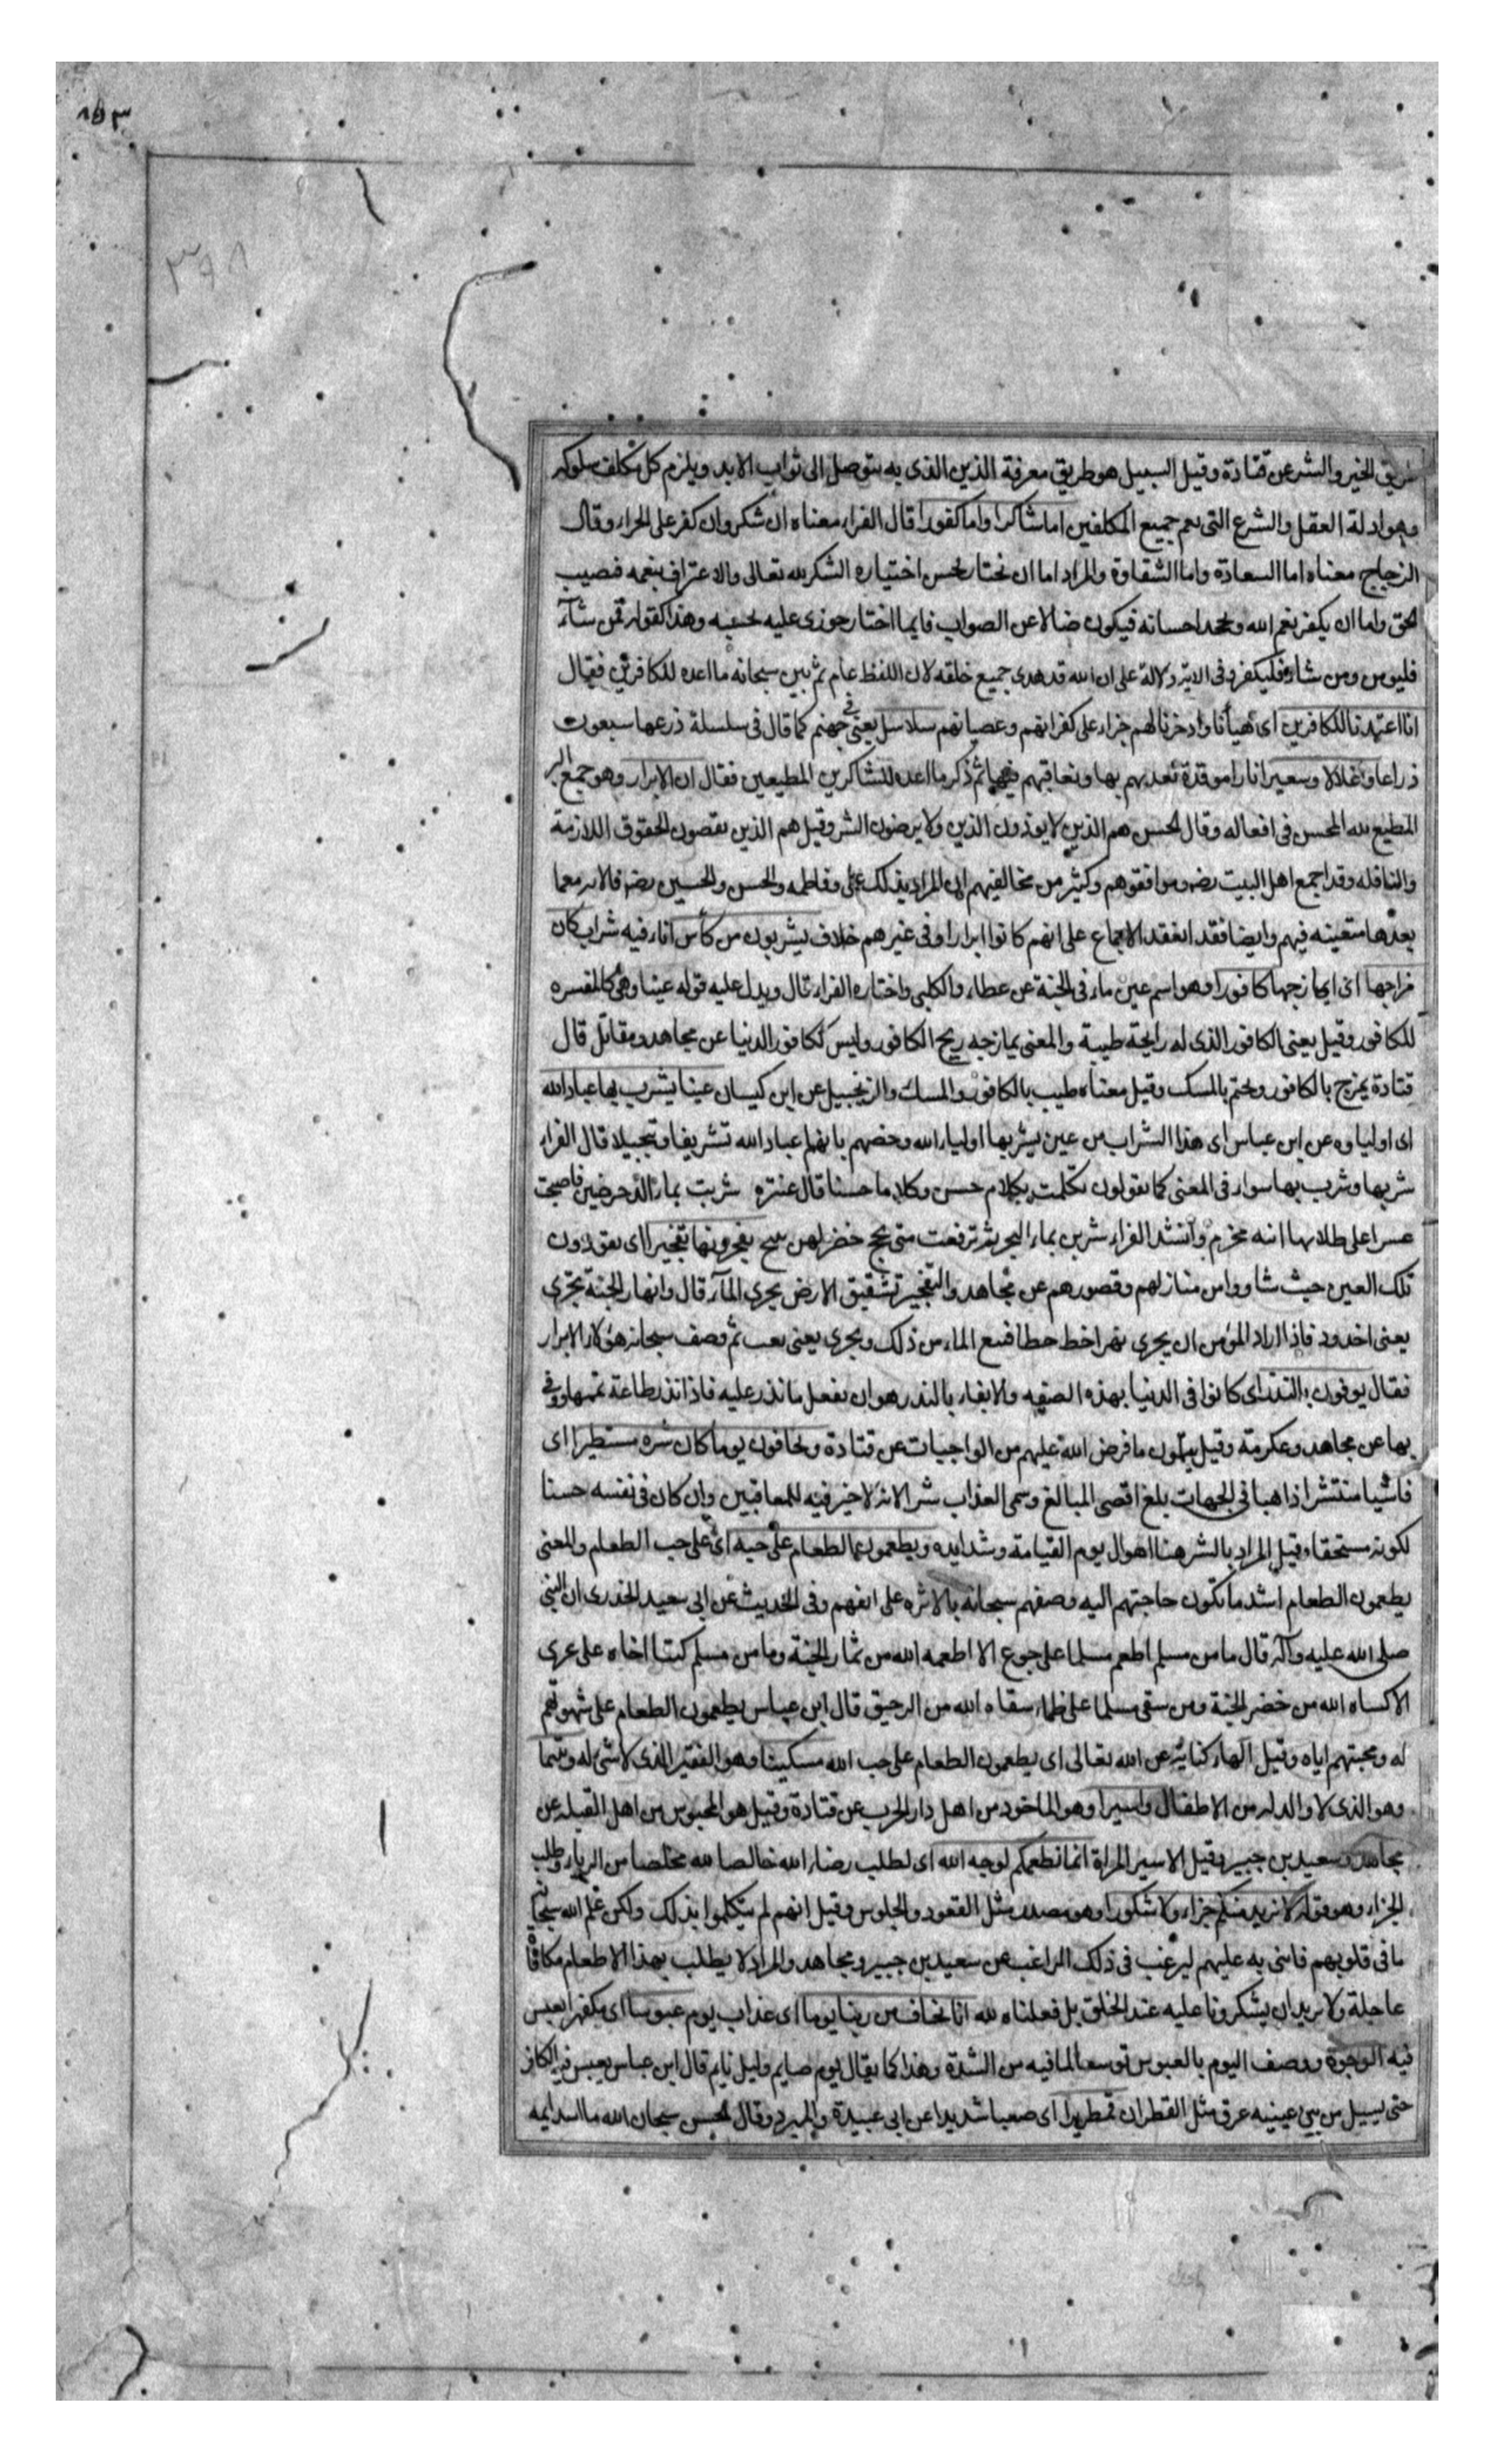 ٨٥٣
٣٩٨
طريق الخير والشر عن قتادة وقيل السبيل هو طريق معرفة الدين الذى به يتوصل الى ثواب الابد ويلزم كل مكلف سلوكه
وهو ادلة العقل والشرع التى يعم جميع المكلفين اما شاكرا واما كفورا قال الفراء معناه ان شكر وان كفر على الجزاء وقال
الزجاج معناه اما السعادة واما الشقاوة والمراد اما ان يختار بحسن اختياره الشكر لله تعالى والاعتراف بنعمه فيصيب
الحق واما ان يكفر بنعم الله ويجحد احسانه فيكون ضالا عن الصواب فايما اختار جوزى عليه بحسبه وهذا كقوله فمن شآء
فليومن ومن شاء فليكفر وفى الاية دلالة على ان الله قد هدى جميع خلقه لان اللفظ عام ثم بين سبحانه ما اعده للكافرين فقال
انا اعتدنا للكافرين اى هيأنا وادخرنا لهم جزاء على كفرانهم وعصيانهم سلاسل يعنى فى جهنم كما قال فى سلسلة ذرعها سبعون
ذراعا واغلالا وسعيرا نارا موقدة نعذبهم بها ونعاقبهم فيها ثم ذكر ما اعده للشاكرين المطيعين فقال ان الابرار وهو جمع البر
المطيع لله المحسن فى افعاله وقال الحسن هم الذين لا يوذون الذين ولا يرضون الشر وقيل هم الذين يقضون الحقوق اللازمة
والنافله وقد اجمع اهل البيت رضه وموافقوهم وكثير من مخالفيهم ان المراد بذلك على وفاطمه والحسن والحسين رضه فالايه مع ما
بعدها متعينه فيهم وايضا فقد انعقد الاجماع على انهم كانوا ابرارا وفى غيرهم خلاف يشربون من كأس اناء فيه شراب كان
مزاجها اى ما يمازجها كافورا وهو اسم عين ماء فى الجنة عن عطاء والكلبى واختاره الفراء قال ويدل عليه قوله عينا وهى كالمفسره
للكافور وقيل يعنى الكافور الذى له رايحة طيبة والمعنى يمازجه ريح الكافور وليس ككافور الدنيا عن مجاهد ومقاتل قال
قتادة يمزج بالكافور ويختم بالمسك وقيل معناه طيب بالكافور والمسك والزنجبيل عن ابن كيسان عينا يشرب بها عباد الله
اى اولياوه عن ابن عباس اى هذا الشراب من عين يشربها اولياء الله وخصهم بانهم عباد الله تشريفا وتبجيلا قال الفراء
شربها وشرب بها سواء فى المعنى كما يقولون تكلمت بكلام حسن وكلاما حسنا قال عنتره شربت بماء الدحرضين فاصبحت
عسرا على طلابها ابنه مخرم وانشد الفراء شربن بماء البحر ثم ترفعت متى لجج خضر لهن نئيج يفجرونها تفجيرا اى يقودون
تلك العين حيث شاووا من منازلهم وقصورهم عن مجاهد والتفجير تشقيق الارض بجرى المآء قال وانهار الجنة تجرى
بغير اخدود فاذا اراد المؤمن ان يجرى نهرا خط خطا فنبع الماء من ذلك ويجرى بغير تعب ثم وصف سبحانه هؤلاء الابرار
فقال يوفون بالنذر اى كانوا فى الدنيا بهذه الصفه والايفاء بالنذر هو ان يفعل ما نذر عليه فاذا نذر طاعة تممها ووفى
بها عن مجاهد وعكرمة وقيل يتمون ما فرض الله عليهم من الواجبات عن قتادة ويخافون يوما كان شره مستطيرا اى
فاشيا منتشرا ذاهبا فى الجهات بلغ اقصى المبالغ وسمى العذاب شر الانه لا خير فيه للمعاقبين وان كان فى نفسه حسنا
لكونه مستحقا وقيل المراد بالشر هنا اهوال يوم القيامة وشدايده ويطعمون الطعام على حبه اى على حب الطعام والمعنى
يطعمون الطعام اشد ما تكون حاجتهم اليه وصفهم سبحانه بالاثره على انفسهم وفى الحديث عن ابى سعيد الخدرى ان النبى
صلى الله عليه وآله قال ما من مسلم اطعم مسلما على جوع الا اطعمه الله من ثمار الجنة وما من مسلم كسا اخاه على عرى
الا كساه الله من خضر الجنة ومن سقى مسلما على ظماء سقاه الله من الرحيق قال ابن عباس يطعمون الطعام على شهوتهم
له ومحبتهم اياه وقيل الهاء كناية عن الله تعالى اى يطعمون الطعام على حب الله مسكينا وهو الفقير الذى لا شئ له ويتيما
وهو الذى لا والد له من الاطفال واسيرا وهو الماخوذ من اهل دار الحرب عن قتادة وقيل هو المحبوس من اهل القبله عن
مجاهد وسعيد بن جبير وقيل الاسير المراة انما نطعمكم لوجه الله اى لطلب رضاء الله خالصا لله مخلصا من الرياء وطلب
الجزاء وهو قوله لا نريد منكم جزاء ولا شكورا وهو مصدر مثل القعود والجلوس وقيل انهم لم يتكلموا بذلك ولكن علم الله سبحانه
ما فى قلوبهم فاثنى به عليهم ليرغب فى ذلك الراغب عن سعيد بن جبير ومجاهد والمراد لا يطلب بهذا الاطعام مكافاة
عاجلة ولا نريد ان يشكرونا عليه عند الخلق بل فعلناه لله انا نخاف من ربنا يوما اى عذاب يوم عبوسا اى مكفهرا يعبس
فيه الوجوه ووصف اليوم بالعبوس توسعا لما فيه من الشدة وهذا كما يقال يوم صايم وليل نايم قال ابن عباس يعبس فيه الكافر
حتى يسيل من بين عينيه عرق مثل القطران قمطريرا اى صعبا شديدا عن ابى عبيدة والمبرد وقال الحسن سبحان الله ما اشد ايمه